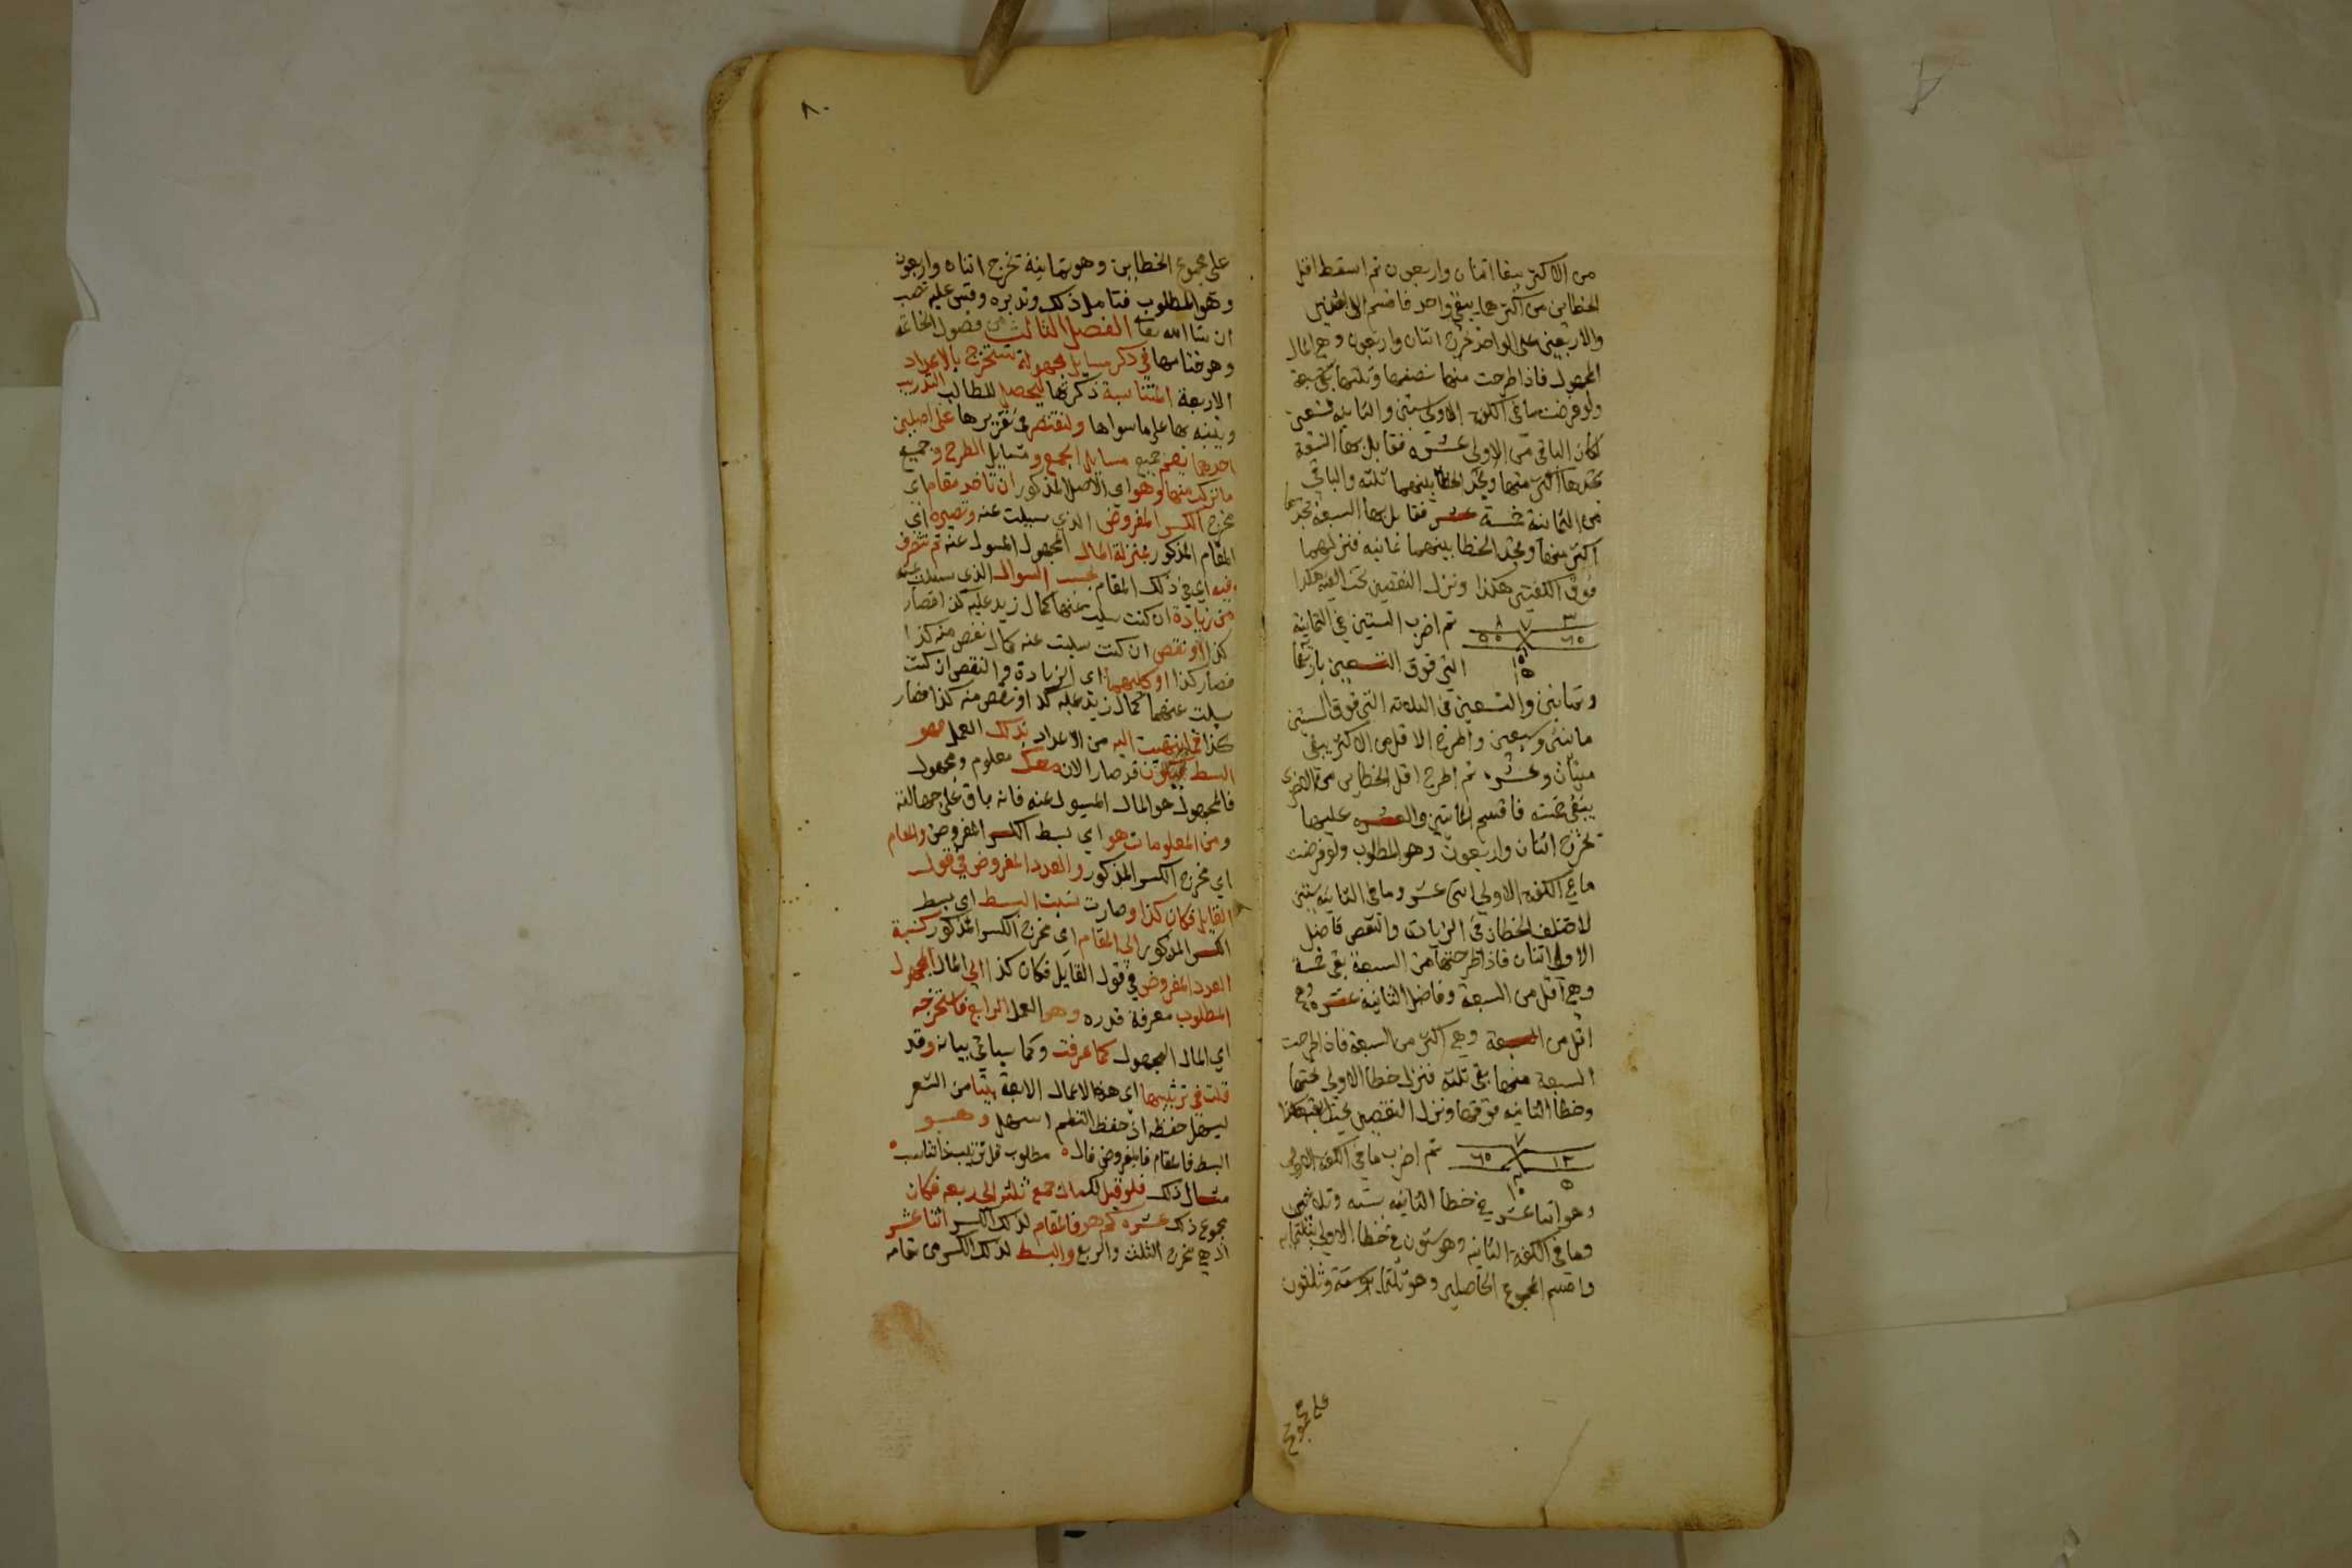 من الاكثر يبقا اثنان واربعون ثم اسقط اقل
الخطاين من اكثرهما يبقي واحد فاقسم الاثنين
والاربعين على الواحد تخرج اثنان واربعون وهي المال
المجهول فاذا طرحت منها نصفها وثلثها بقي سبعة
ولو فرضت ما في الكفة الاولى ستين والثانية تسعين
لكان الباقي من الاولى عشرة فقابل بها السبعة
تجدها اكثر منها وتجد الخطا بينهما ثلثة والباقي
من الثمانية خمسة عشر فقابل بها السبعة تجدها
اكثر منها وتجد الخطا بينهما ثمانية فنزلهما
فوق الكفتين هكذا ونزل النقصين تحت القبة هكذا
٣ ٧ ٨ ثم اضرب الستين في الثمانية
٦٠
١٥ التي فوق التسعين باربعما
وثمانين والتسعين في الثلاثة التي فوق الستين
مائتين وسبعين واطرح الاقل من الاكثر يبقى
ميتان وعشرة ثم اطرح اقل الخطاين من الاخرى
يبقى خمسة فاقسم المائتين والعشرة عليها
تخرج اثنان واربعون وهو المطلوب ولو فرضت
ما في الكفة الاولي اثني عشر وما في الثانية ستين
لاختلف الخطان في الزيادة والنقص فاضل
الاولى اثنان فاذا طرحتها من السبعة بقي خمسة
وهي اقل من السبعة وفاضل الثانية عشرة وهي
اقل من السبعة وهي اكثر من السبعة فاذا طرحت
السبعة منها بقي ثلثة فنزل خطا الاولى تحتها
وخطا الثانية فوقها ونزل النقصين تحت القبة هكذا
١٢ ٧ ٦٠ ثم اضرب ما في الكفة الاولى
٥ ٢ ١٠
وهو اثنا عشر في خطا الثانية بستة وثلاثين
وما في الكفة الثانية وهو ستون في خطا الاولي بثلثماية
واقسم المجموع الحاصلين وهو ثلثماية وستة وثلثون
على مجموع
٨٠
على مجموع الخطاين وهو ثمانية تخرج اثنان واربعون
وهو المطلوب فتامل ذلك وتدبره وقس عليه تصب
ان شا الله تعا الفصل الثالث من فصول الخاتمة
وهو ختامها في ذكر مسايل مجهولة تستخرج بالاعداد
الاربعة المتناسبة ذكرتها ليحصل للطالب التدريب
ويتنبه بها على ما سواها ولنقتصر في تقريرها على اصلين
احدهما يعم جميع مسايل الجمع ومسايل الطرح وجميع
ما تركب منها وهو اي الاصل المذكور ان تاخذ مقام اي
مخرج الكسر المفروض الذي سيلت عنه وتصيره اي
المقام المذكور بمنزلة المال المجهول المسول عنه ثم تتصرف
فيه اي في ذلك المقام بحسب السوال الذي سيلت عنه
من زيادة ان كنت سيلت عنها كمال زيد عليه كذا فصار
كذا او نقص ان كنت سيلت عنه كمال نقص منه كذا
فصار كذا او كليهما اي الزيادة والنقص ان كنت
سيلت عنهما كمال زيد عليه كذا او نقص منه كذا فصار
كذا فما انتهيت اليه من الاعداد بذلك العمل فهو
البسط فيكون قد صار الان معك معلوم ومجهول
فالمجهول هو المال المسيول عنه فانه باق على جهالته
ومن المعلومات هو اي بسط الكسر المفروض والمقام
اي مخرج الكسر المذكور والعدد المفروض في قول
القايل فكان كذا وصارت نسبت البسط اي بسط
الكسر المذكور الى المقام اي مخرج الكسر المذكور كنسبة
العدد المفروض في قول القايل فكان كذا الي المال المجهول
المطلوب معرفة قدره وهو العمل الرابع فاستخرجه
اي المال المجهول كما عرفت وكما سياتي بيانه وقد
قلت في ترتيبها اي هذه الاعمال الاربعة بيتا من الشعر
ليسهل حفظه اذ حفظ النظم اسهل وهو
البسط فالمقام فالمفروض قال مطلوب
مثال ذلك فلو قيل لك مال جمع ثلثه الى ربعه فكان
مجموع ذلك عشرة كم هو فالمقام لذلك الكسر اثنا عشر
اذ هي مخرج الثلث والربع والبسط لذلك الكسر من مقامه